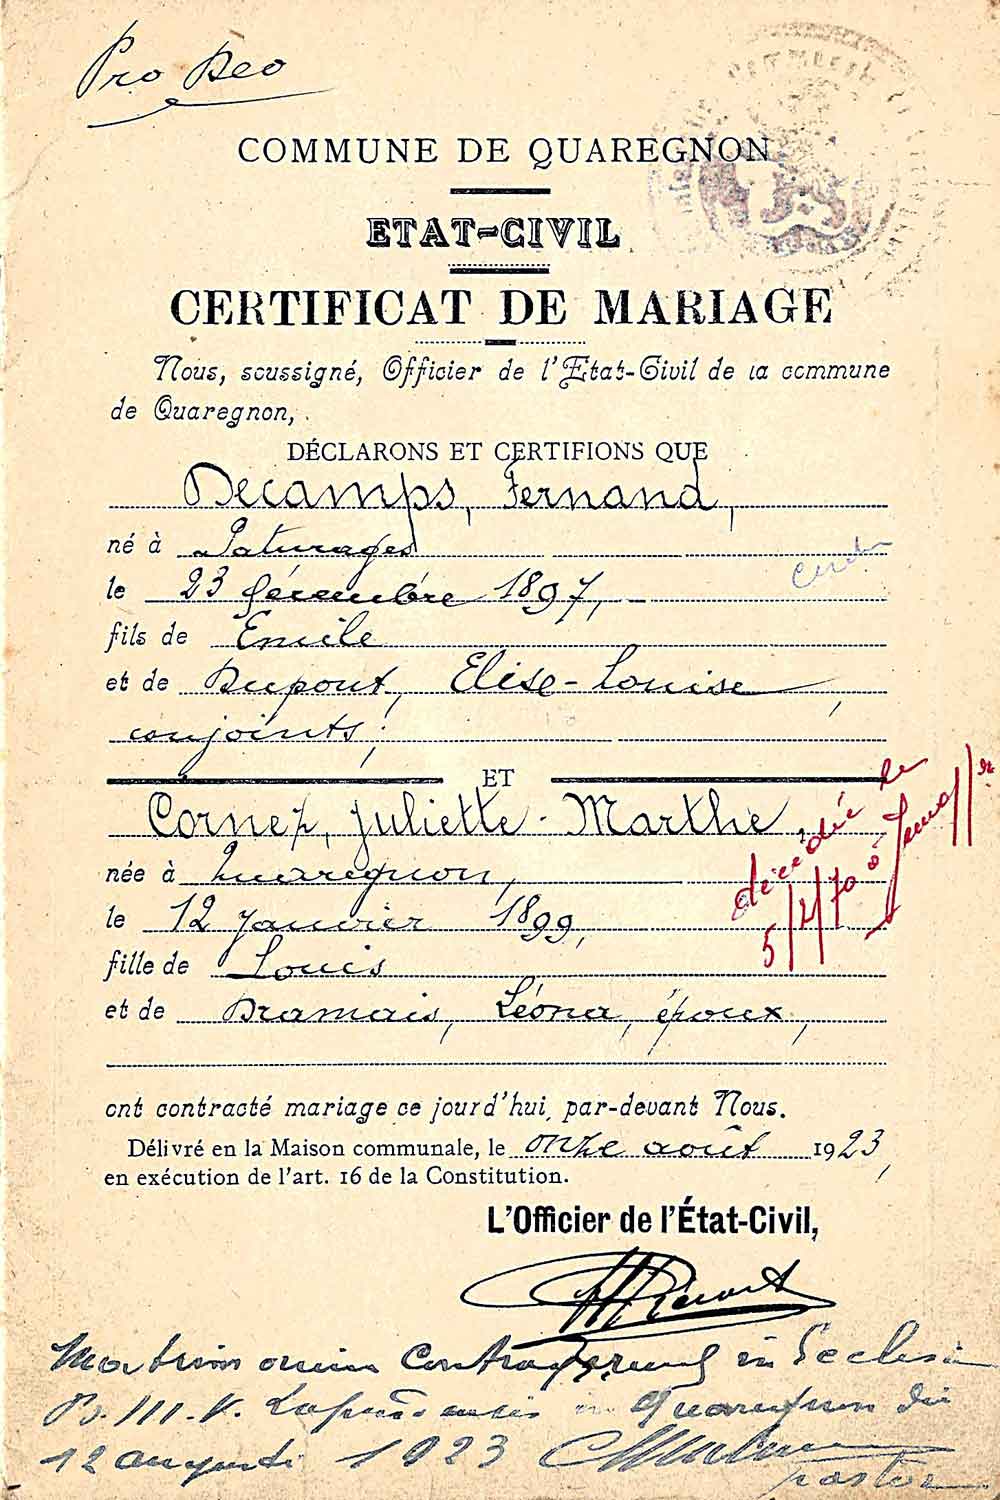 Pro Deo
COMMUNE DE QUAREGNON
ETAT-CIVIL
CERTIFICAT DE MARIAGE
Nous, soussigné, Officier de l'Etat-Civil de la commune
de Quaregnon,
DÉCLARONS ET CERTIFIONS QUE
Decamps, Fernand,
né à Paturages
le 23 décembre 1897,
fils de Emile
et de Dupont, Elise-Louise,
conjoints;
ET
Cornez, Juliette-Marthe,
née à Quaregnon,
le 12 Janvier 1899,
fille de Louis
et de Dramais, Léona, époux,
décédée le
5/4/70 à
ont contracté mariage ce jourd'hui, par-devant Nous.
Délivré en la Maison communale, le onze août 1923,
en exécution de l'art. 16 de la Constitution.
L'Officier de l'État-Civil,
Matrimonium contraxerunt in Ecclesia
B. M. V. in Quaregnon die
12 augusti 1923
pastor